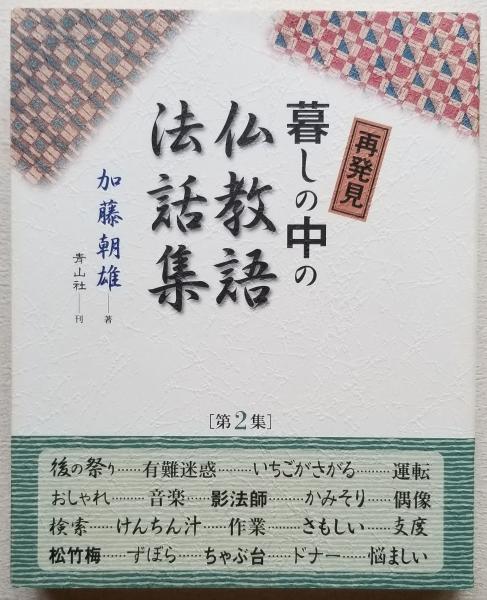 再発見
暮しの中の
仏教語
法話集
加藤朝雄──著
青山社──刊
[第2集]
後の祭り……有難迷惑……いちごがさがる……運転
おしゃれ……音楽……影法師……かみそり……偶像
検索……けんちん汁……作業……さもしい……支度
松竹梅……ずぼら……ちゃぶ台……ドナー……悩ましい